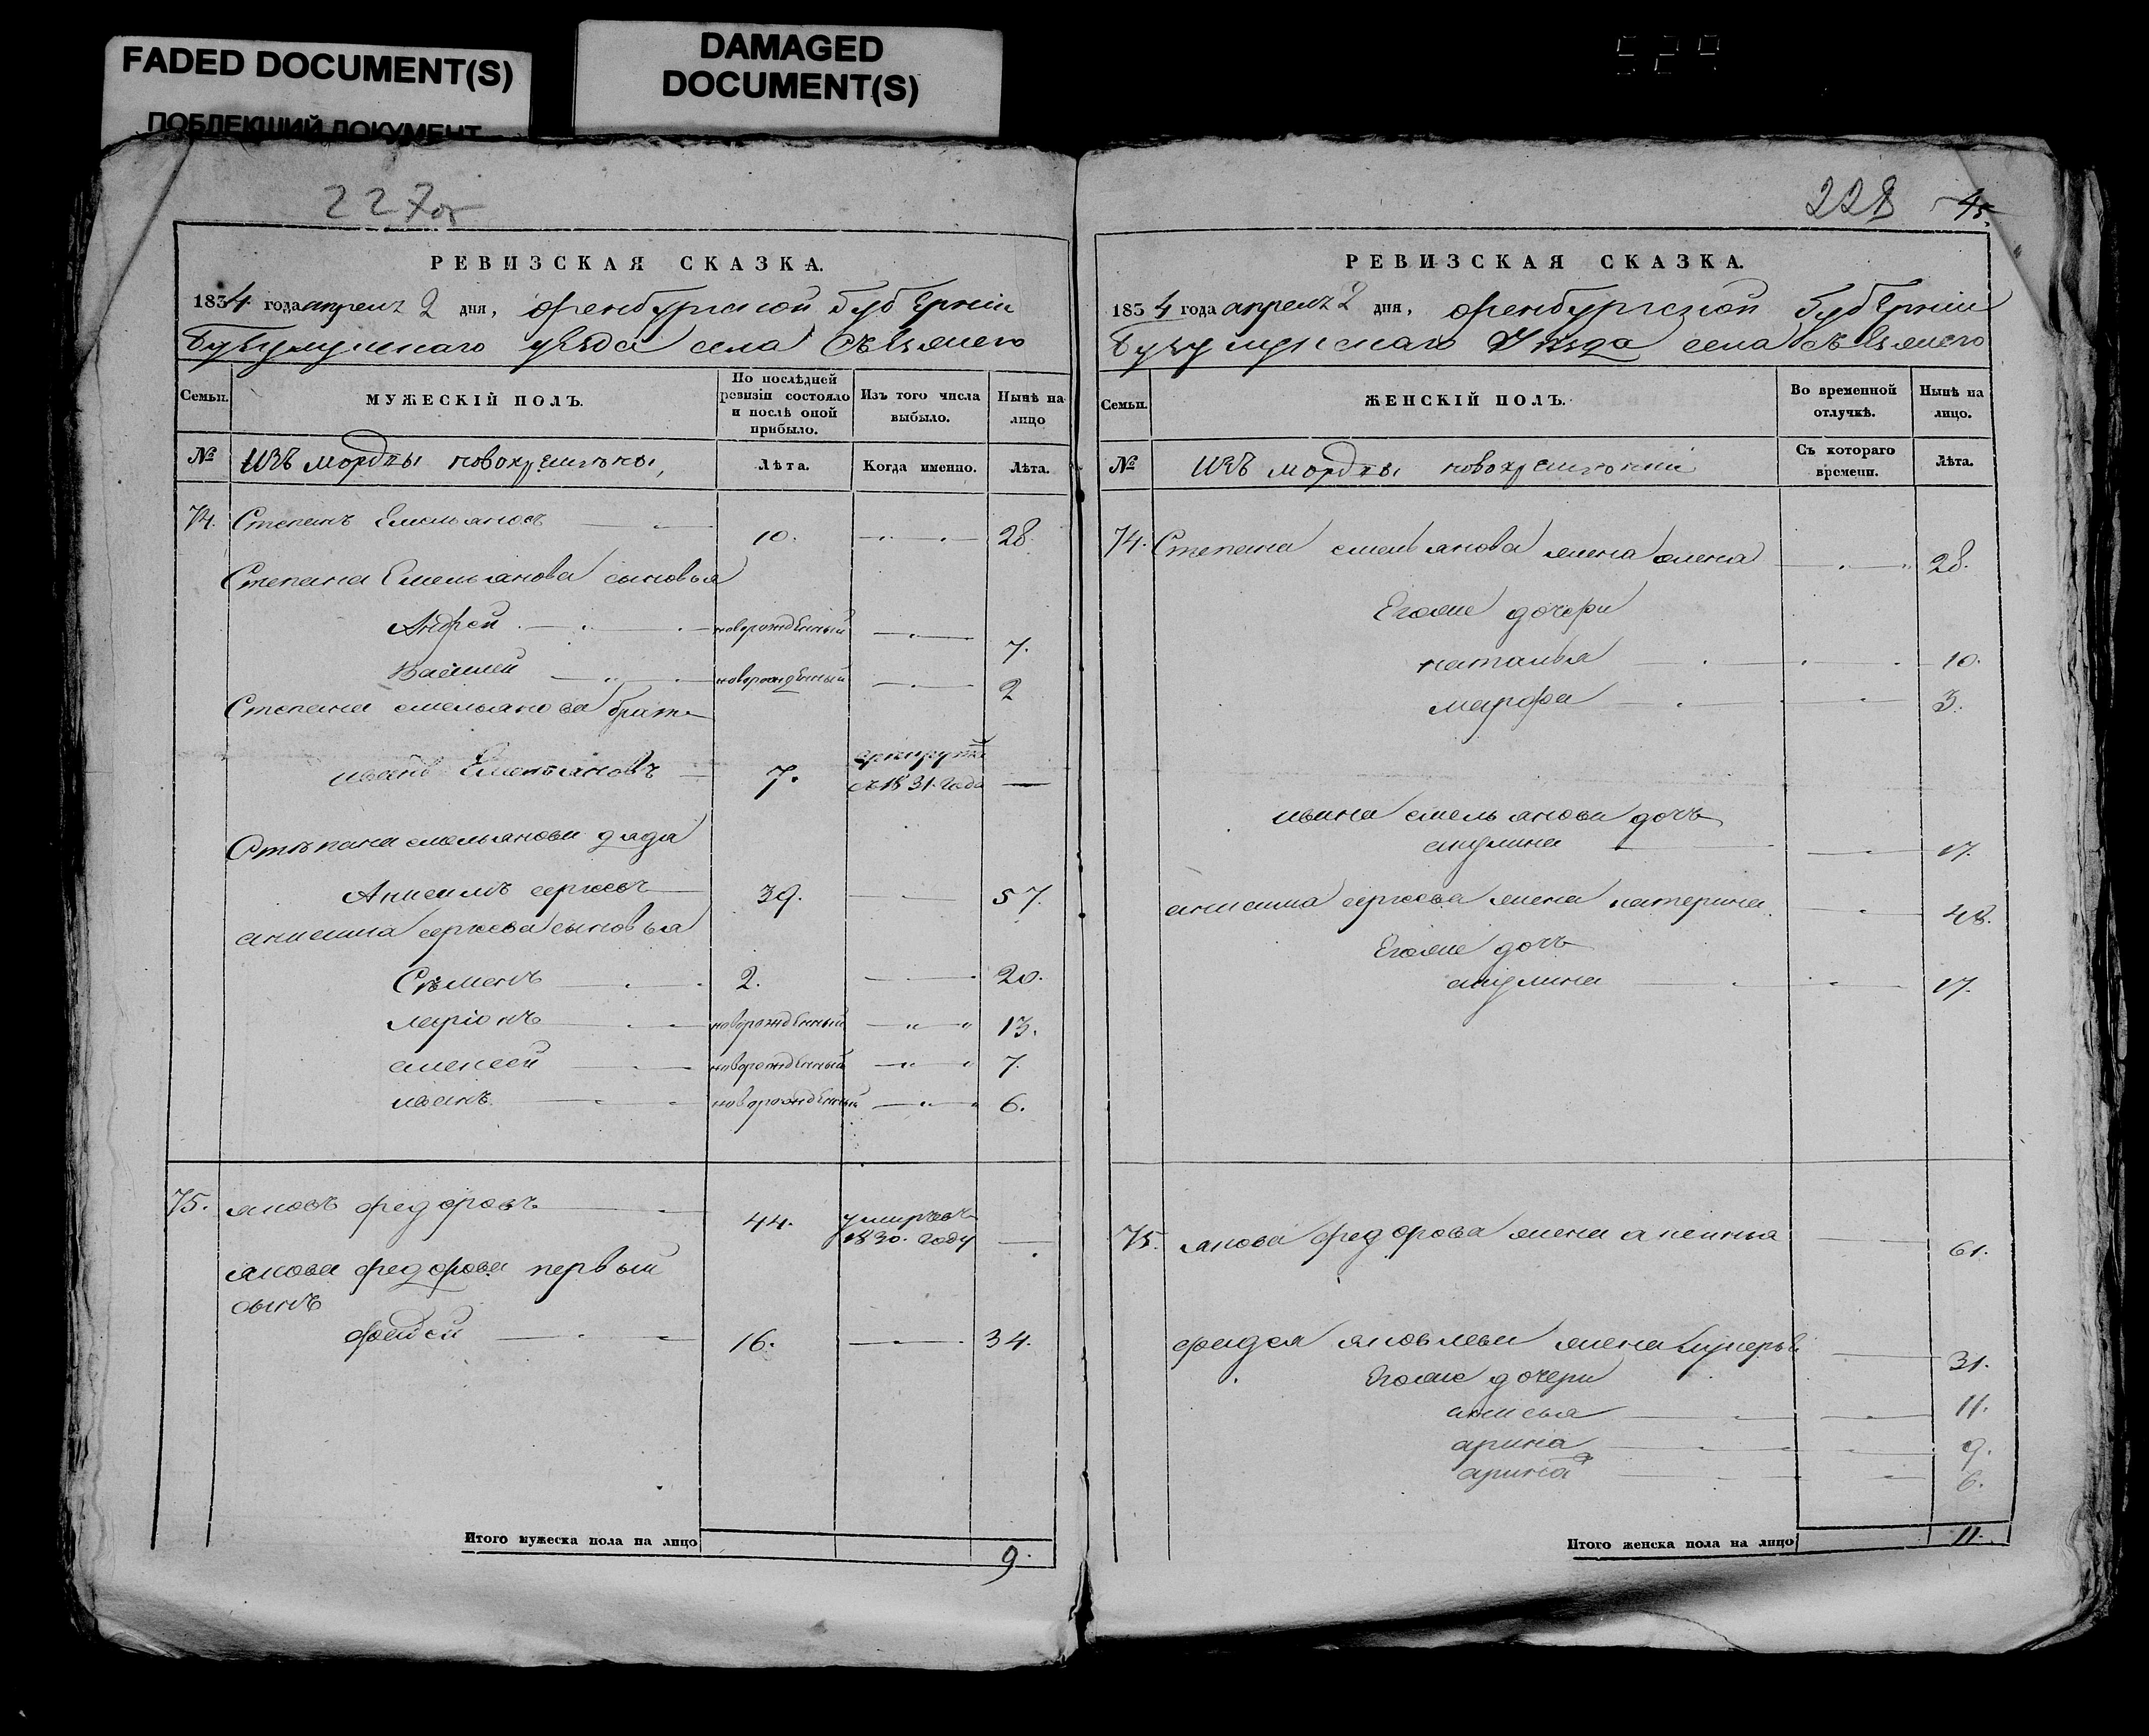 FADED DOCUMENT(S)
ПОБЛЕКШИЙ ДОКУМЕНТ
DAMAGED
DOCUMENT(S)
529
227об
РЕВИЗСКАЯ СКАЗКА.
1834 года апреля 2 дня, оренбургской губернiи
Бугульминскаго уѣзда села
Семьи.
МУЖЕСКIЙ ПОЛЪ.
По послѣдней ревизiи состояло и послѣ оной прибыло.
Изъ того числа выбыло.
Нынѣ на лицо
№
Изъ мордвы новокрещены,
Лѣта.
Когда именно.
Лѣта.
74. Степанъ Емельяновъ 10. 28.
Степана Емельянова сыновья
Андрей новорожденный 7.
Василей новорожденный 2
Степана емельянова братъ
иванъ Емельяновъ 7. съ 1831. года —
Степана емельянова дядя
Анисимъ сергеевъ 39. 57.
анисима сергеева сыновья
Семенъ 2. 20.
ларiонъ новорожденный 13.
алексей новорожденный 7.
иванъ новорожденный 6.
75. яковъ федоровъ 44. умиръ въ 1830. году —
якова федорова первый
сынъ
фадей 16. 34.
Итого мужеска пола на лицо 9.
228 45.
РЕВИЗСКАЯ СКАЗКА.
1834 года апреля 2 дня, оренбургской губернiи
Бугульминскаго Уѣзда села
Семьи.
ЖЕНСКIЙ ПОЛЪ.
Во временной отлучкѣ.
Нынѣ на лицо.
№
Изъ мордвы новокрещенки
Съ котораго времени.
Лѣта.
74. Степана емельянова жена алена 28.
Егоже дочери
наталья 10.
марфа 3.
ивана емельянова дочь
акулина 17.
анисима сергеева жена катерина 48.
Егоже дочь
акулина 17.
75. якова федорова жена аксинья 61.
фадея яковлева жена лукерья 31.
Егоже дочери
анисья 11.
арина 9.
арина 6.
Итого женска пола на лицо 11.